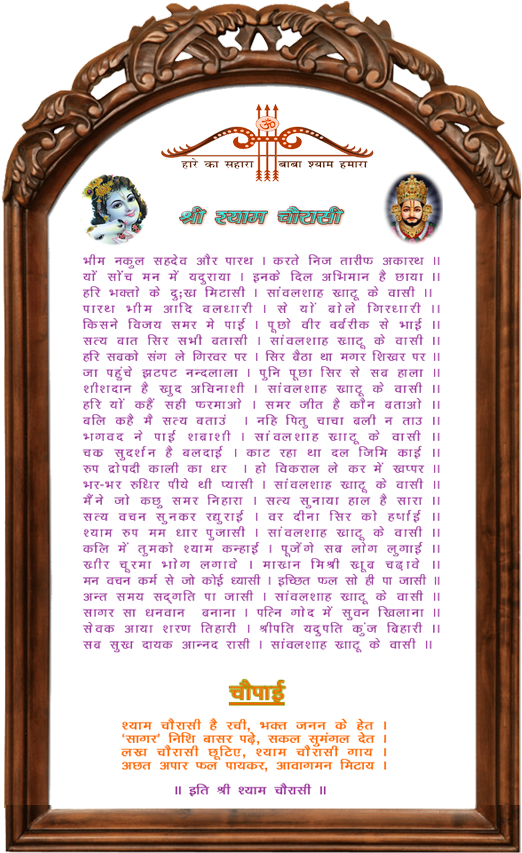 ॐ
हारे का सहारा बाबा श्याम हमारा
श्री श्याम चौरासी
भीम नकुल सहदेव और पारथ । करते निज तारीफ अकारथ ॥
यों सोंच मन में यदुराया । इनके दिल अभिमान है छाया ॥
हरि भक्तो के दु:ख मिटासी । सांवलशाह खाटू के वासी ॥
पारथ भीम आदि बलधारी । से यों बोले गिरधारी ॥
किसने विजय समर मे पाई । पूछो वीर बर्बरीक से भाई ॥
सत्य बात सिर सभी बतासी । सांवलशाह खाटू के वासी ॥
हरि सबको संग ले गिरवर पर । सिर बैठा था मगर शिखर पर ॥
जा पहुंचे झटपट नन्दलाला । पुनि पूछा सिर से सब हाला ॥
शीशदान है खुद अविनाशी । सांवलशाह खाटू के वासी ॥
हरि यों कहैं सही फरमाओ । समर जीत है कौन बताओ ॥
बलि कहै मै सत्य बताउं । नहि पितु चाचा बली न ताउ ॥
भगवद ने पाई शबाशी । सांवलशाह खाटू के वासी ॥
चक सुदर्शन है बलदाई । काट रहा था दल जिमि काई ॥
रुप द्रोपदी काली का धर । हो विकराल ले कर में खप्पर ॥
भर-भर रुधिर पीये थी प्यासी । सांवलशाह खाटू के वासी ॥
मैँने जो कछु समर निहारा । सत्य सुनाया हाल है सारा ॥
सत्य वचन सुनकर यदुराई । वर दीना सिर को हर्षाई ॥
श्याम रुप मम धार पुजासी । सांवलशाह खाटू के वासी ॥
कलि में तुमको श्याम कन्हाई । पूजेंगे सब लोग लुगाई ॥
खीर चूरमा भोग लगावे । माखन मिश्री खूब चढ़ावे ॥
मन वचन कर्म से जो कोई ध्यासी । इच्छित फल सो ही पा जासी ॥
अन्त समय सद्गति पा जासी । सांवलशाह खाटू के वासी ॥
सागर सा धनवान बनाना । पत्नि गोद में सुवन खिलाना ॥
सेवक आया शरण तिहारी । श्रीपति यदुपति कुंज बिहारी ॥
सब सुख दायक आनन्द रासी । सांवलशाह खाटू के वासी ॥
चौपाई
श्याम चौरासी है रची, भक्त जनन के हेत ।
'सागर' निशि बासर पढ़े, सकल सुमंगल देत ।
लख चौरासी छूटिए, श्याम चौरासी गाय ।
अछत अपार फल पायकर, आवागमन मिटाय ।
॥ इति श्री श्याम चौरासी ॥